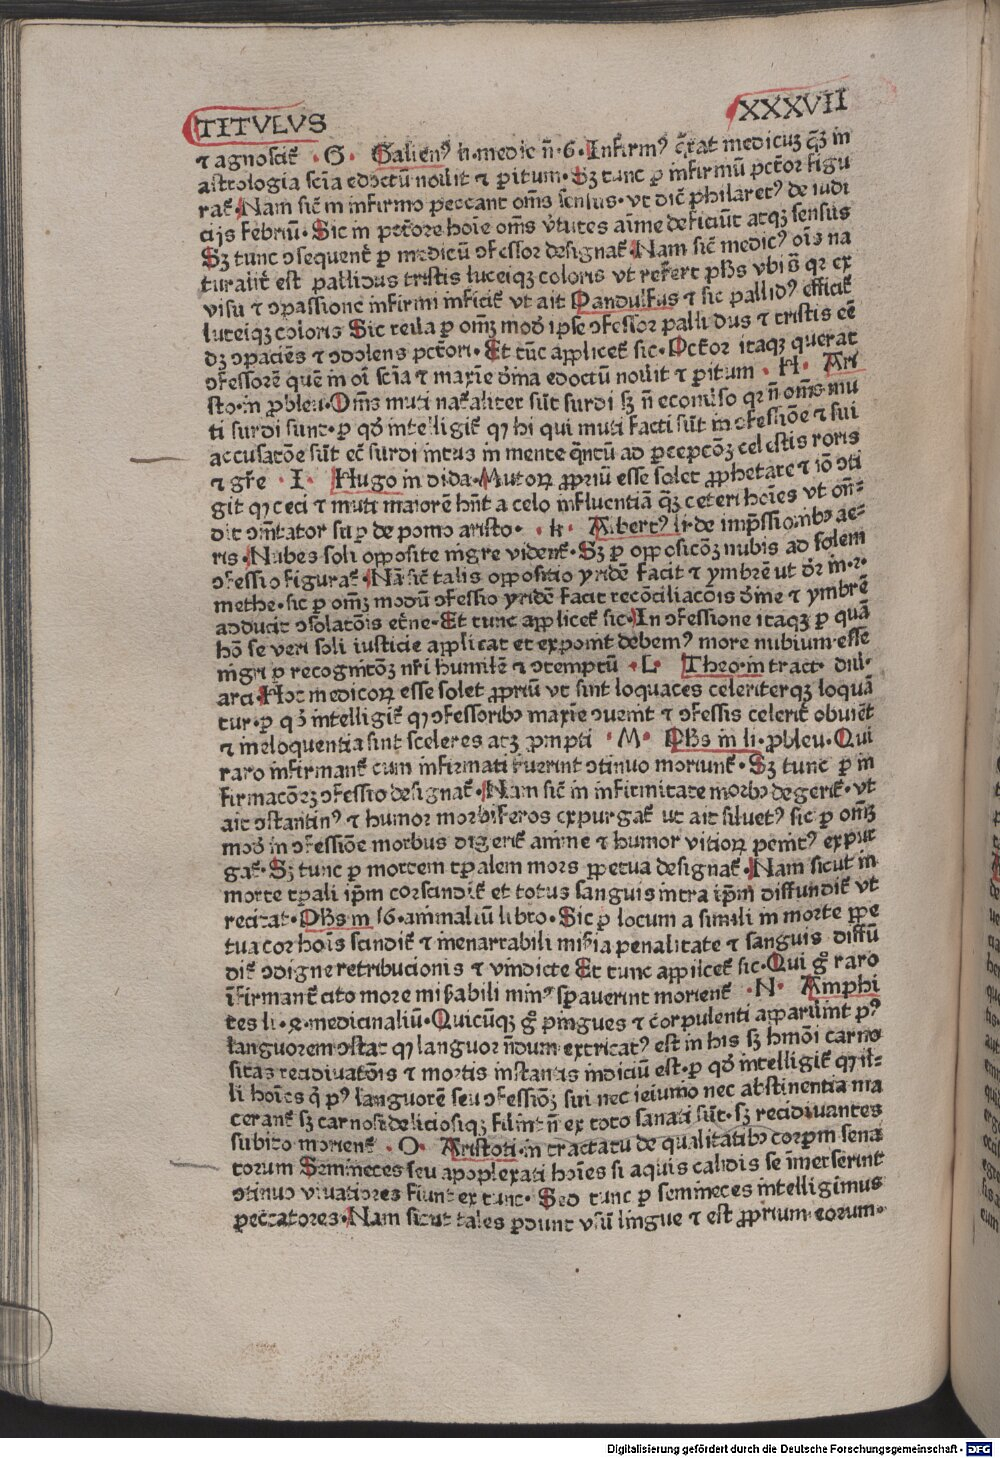 TITVLVS XXXVII
⁊ agnoscit̄ · G · Galienꝰ li·medic̄ n̄·6·Infirmꝰ q̄rat medicuꝫ q̄ꝫ in
astrologia sciā edoctū nouit ⁊ ꝑitum·Sꝫ tunc ꝑ infirmū pctor̄ figu
rat̄·Nam sic̄ in infirmo peccant om̄s sensus·vt dic̄ philaretꝰ de iudi
cijs febriū·Sic in pctore hoīe om̄s v̄tutes aīme deficiūt atqꝫ sensus
Sꝫ tunc ꝯsequent̄ ꝑ medicū ꝯfessor designat̄·Nam sic̄ medicꝰ oīs na
turalit̄ est pallidus tristis luceiqꝫ coloris vt refert pħs vbi s̄ qꝛ ex
visu ⁊ ꝯpassione infirmi inficit̄ vt ait Pandulfus ⁊ sic pallidꝰ efficit̄
luteiqꝫ coloris Sic reula ꝑ omꝫ modū ipse ꝯfessor pallidus ⁊ tristis eē
dꝫ ꝯpaciēs ⁊ ꝯdolens pctori·Et tūc applicet̄ sic·Pctor itaqꝫ querat
ꝯfessorē quē in oī sciā ⁊ maxīe dīna edoctū nouit ⁊ ꝑitum · H · Ari
sto·in ꝓbleu·Om̄s muti nat̄aliter sūt surdi sꝫ n̄ econuīso qꝛ n̄ om̄s mu
ti surdi sunt·ꝑ qđ intelligit̄ qꝫ hi qui muti facti sūt in ꝯfessiōe ⁊ sui
accusatōe sūt ec̄ surdi intus in mente q̄ntū ad ꝑcepcōꝫ celestis roris
⁊ gr̄e · I · Hugo in dida·Mutoꝝ ꝓpriū esse solet ꝓphetare ⁊ iō ꝯti
git qꝫ ceci ⁊ muti maiorē hn̄t a celo influentiā q̄ꝫ ceteri hoīes vt on̄
dit ꝯm̄tator suꝑ de pomo aristo· · k · Albertꝰ li·de imp̄ssionibꝫ ae
ris·Nubes soli opposite nigre vident̄·Sꝫ ꝑ opposicōꝫ nubis ad solem
ꝯfessio figurat̄·Nā sic̄ talis oppositio yridē facit ⁊ ymbrē ut dr̄ in·2·
methe·sic ꝑ omꝫ modū ꝯfessio yridē facit recōciliacōis dīne ⁊ ymbrē
adducit ꝯsolatōis et̄ne·Et tunc applicet̄ sic·In ꝯfessione itaqꝫ ꝑ quā
hō se veri soli iusticie applicat et exponit debemꝰ more nubium esse
nigri ꝑ recognitōꝫ nr̄i humilē ⁊ ꝯtemptū · L · Theo·in tract· diu·
arci·Hoc medicoꝝ esse solet ꝓpriū vt sint loquaces celeriterqꝫ loquā
tur·ꝑ qđ intelligit̄ qꝫ ꝯfessoribꝫ maxīe ꝯuenit ⁊ ꝯfessis celerit̄ obuiēt
⁊ in eloquentia sint sceleres atqꝫ prompti · M · Pħs in li·ꝓbleu·Qui
raro infirmant̄ cum infirmati fuerint ꝯtinuo moriunt̄·Sꝫ tunc ꝑ in
firmacōꝫ ꝯfessio designat̄·Nam sic̄ in infirmitate morbꝫ degerit̄·vt
ait ꝯstantinꝰ ⁊ humor morbiferos expurgat̄ ut ait siluetꝰ sic ꝑ omꝫ
modū in ꝯfessiōe morbus digerit̄ anime ⁊ humor vitioꝝ penitꝰ expur
gat̄·Sꝫ tunc ꝑ mortem tꝑalem mors ꝑpetua designat̄·Nam sicut in
morte tꝑali ip̄m cor scindit̄ et totus sanguis intra ip̄m diffundit̄ vt
recitat·Pħs in 16·animaliū libro·Sic ꝑ locum a simili in morte ꝑpe
tua cor hoīs scindit̄ ⁊ inenarrabili mis̄ia penalitate ⁊ sanguis diffū
dit̄ ꝯdigne retribucionis ⁊ vindicte Et tunc applicet̄ sic·Qui gͦ raro
īfirmant̄ cito more mis̄abili nimꝰ sꝑauerint morient̄ · N · Amphi
tes li·2·medicinaliū·Quicūqꝫ gͦ pingues ⁊ corpulenti apparūint pꝰ
languorem ꝯstat qꝫ languor nōdum extricatꝰ est in his sꝫ hmōi carno
sitas recidiuatōis ⁊ mortis instantis indiciū est·ꝑ qđ intelligit̄ qꝫ il
li hoīes q̄ pꝰ languorē seu ꝯfessiōꝫ sui nec ieiunio nec abstinentia ma
cerant̄ sꝫ carnosi deliciosiqꝫ fiūnt n̄ ex toto sanati sūt·sꝫ recidiuantes
subito morient̄ · O · Aristoti·in tractatu de qualitatibꝫ corpꝝm sena
torum Semineces seu apoplexati hoīes si aquis calidis se īmerserint
ꝯtinuo viuatiores fiunt ex tunc·Sed tunc ꝑ semineces intelligimus
peccatores·Nam sicut tales ꝑdunt vsū lingue ⁊ est ꝓprium eorum·
Digitalisierung gefördert durch die Deutsche Forschungsgemeinschaft · DFG